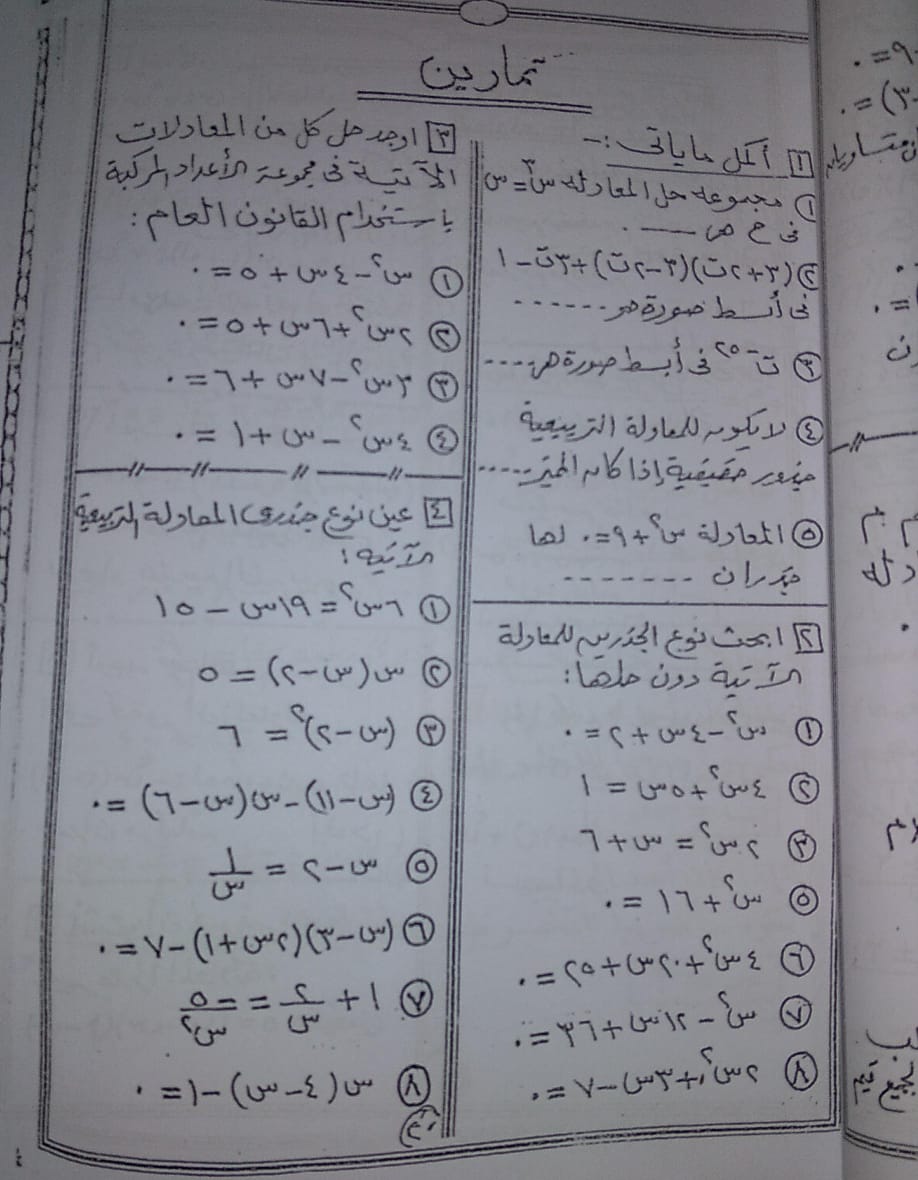 تمارين
١ أكمل ما يأتى :-
١ مجموعه حل المعادله س٣ = س
فى ح هى ــــ .
٢ (٣+٢ت)(٣-٢ت)+٣ت-١
فى أبسط صورة هو ......
٣ ت-٢٥ فى أبسط صورة هى ....
٤ لا يكون للمعادلة التربيعية
جذور حقيقية إذا كان المميز .....
٥ المعادلة س٢+٩=٠ لها
جذران .......
٢ ابحث نوع الجذرين للمعادلة
الآتية دون حلها :
١ س٢-٤س+٢=٠
٢ ٤س٢+٥س=١
٣ ٢س٢=س+٦
٥ س٢+١٦=٠
٦ ٤س٢+٢٠س+٢٥=٠
٨ س٢-٢١س+٦٣=٠
٧ ٢س٢+٣س-٨=٠
٣ اوجد حل كل من المعادلات
الآتيـة فى مجموعة الأعداد المركبة
باستخدام القانون العام :
١ س٢-٤س+٥=٠
٢ ٢س٢+٦س+٥=٠
٣ ٣س٢-٧س+٦=٠
٤ ٤س٢-س+١=٠
٤ عين نوع جذرى المعادلة التربيعية
الآتيه :
١ ٦س٢=١٩س-١٥
٢ س(س-٢)=٥
٣ (س-٢)٢=٦
٤ (س-١١)-س(س-٦)=٠
٥ س-٢=١/س
٦ (س-٣)(٢س+١)-٨=٠
٨ ١+٢/س==٥/س٢
٧ س(٤-س)-١=٠